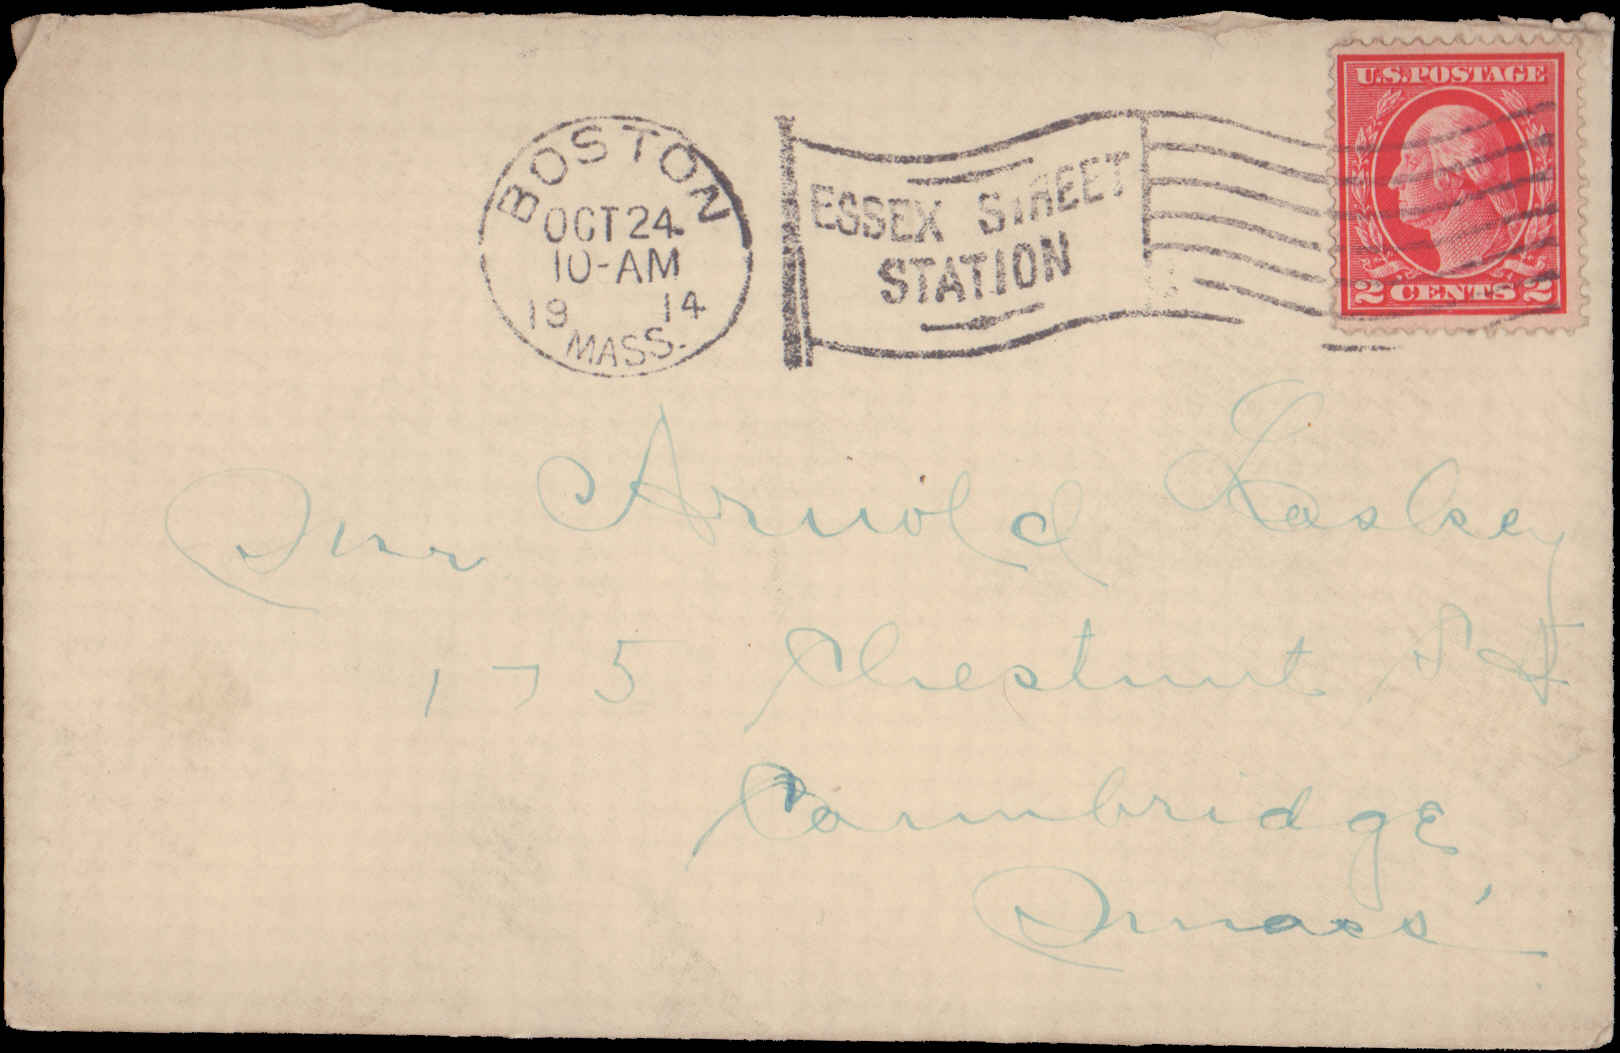 BOSTON
OCT 24
10-AM
19 14
MASS.
ESSEX STREET
STATION
U.S. POSTAGE
2 CENTS 2
Mr Arnold Laskey
175 Chestnut St
Cambridge
Mass